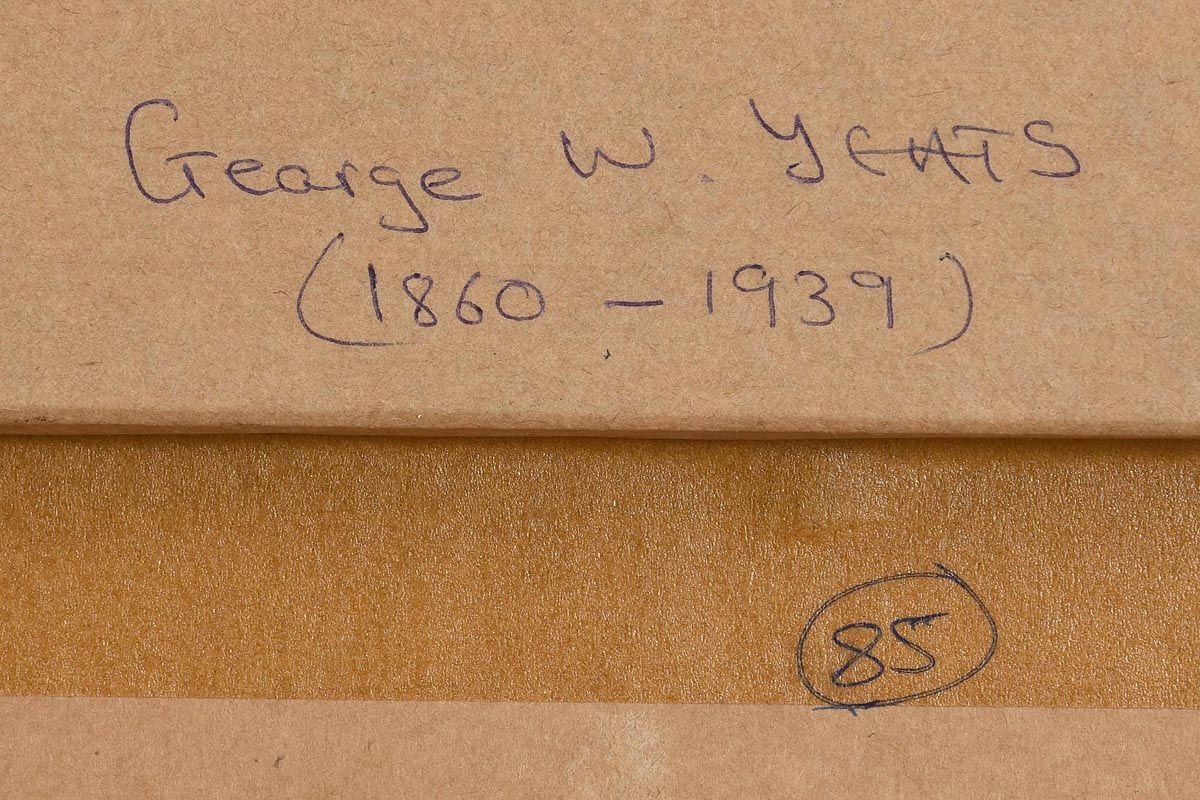 George W. YEATS
(1860 - 1939)
85